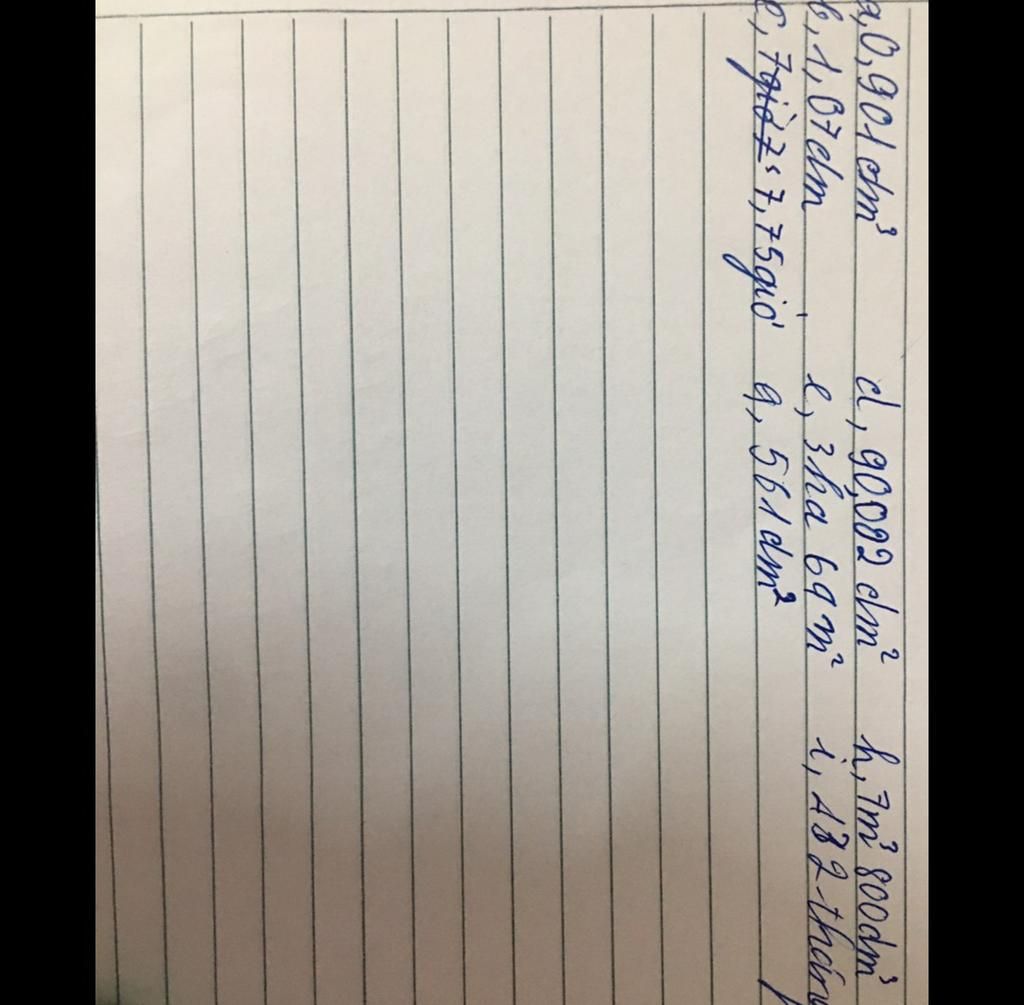 a, 0,901 dm³ d, 90,082 dm² h, 7m³ 800dm³
b, 1,07dm e, 3ha 69 m² i, 132 thán
c, 7giờ 7s 7,75giờ g, 561 dm²